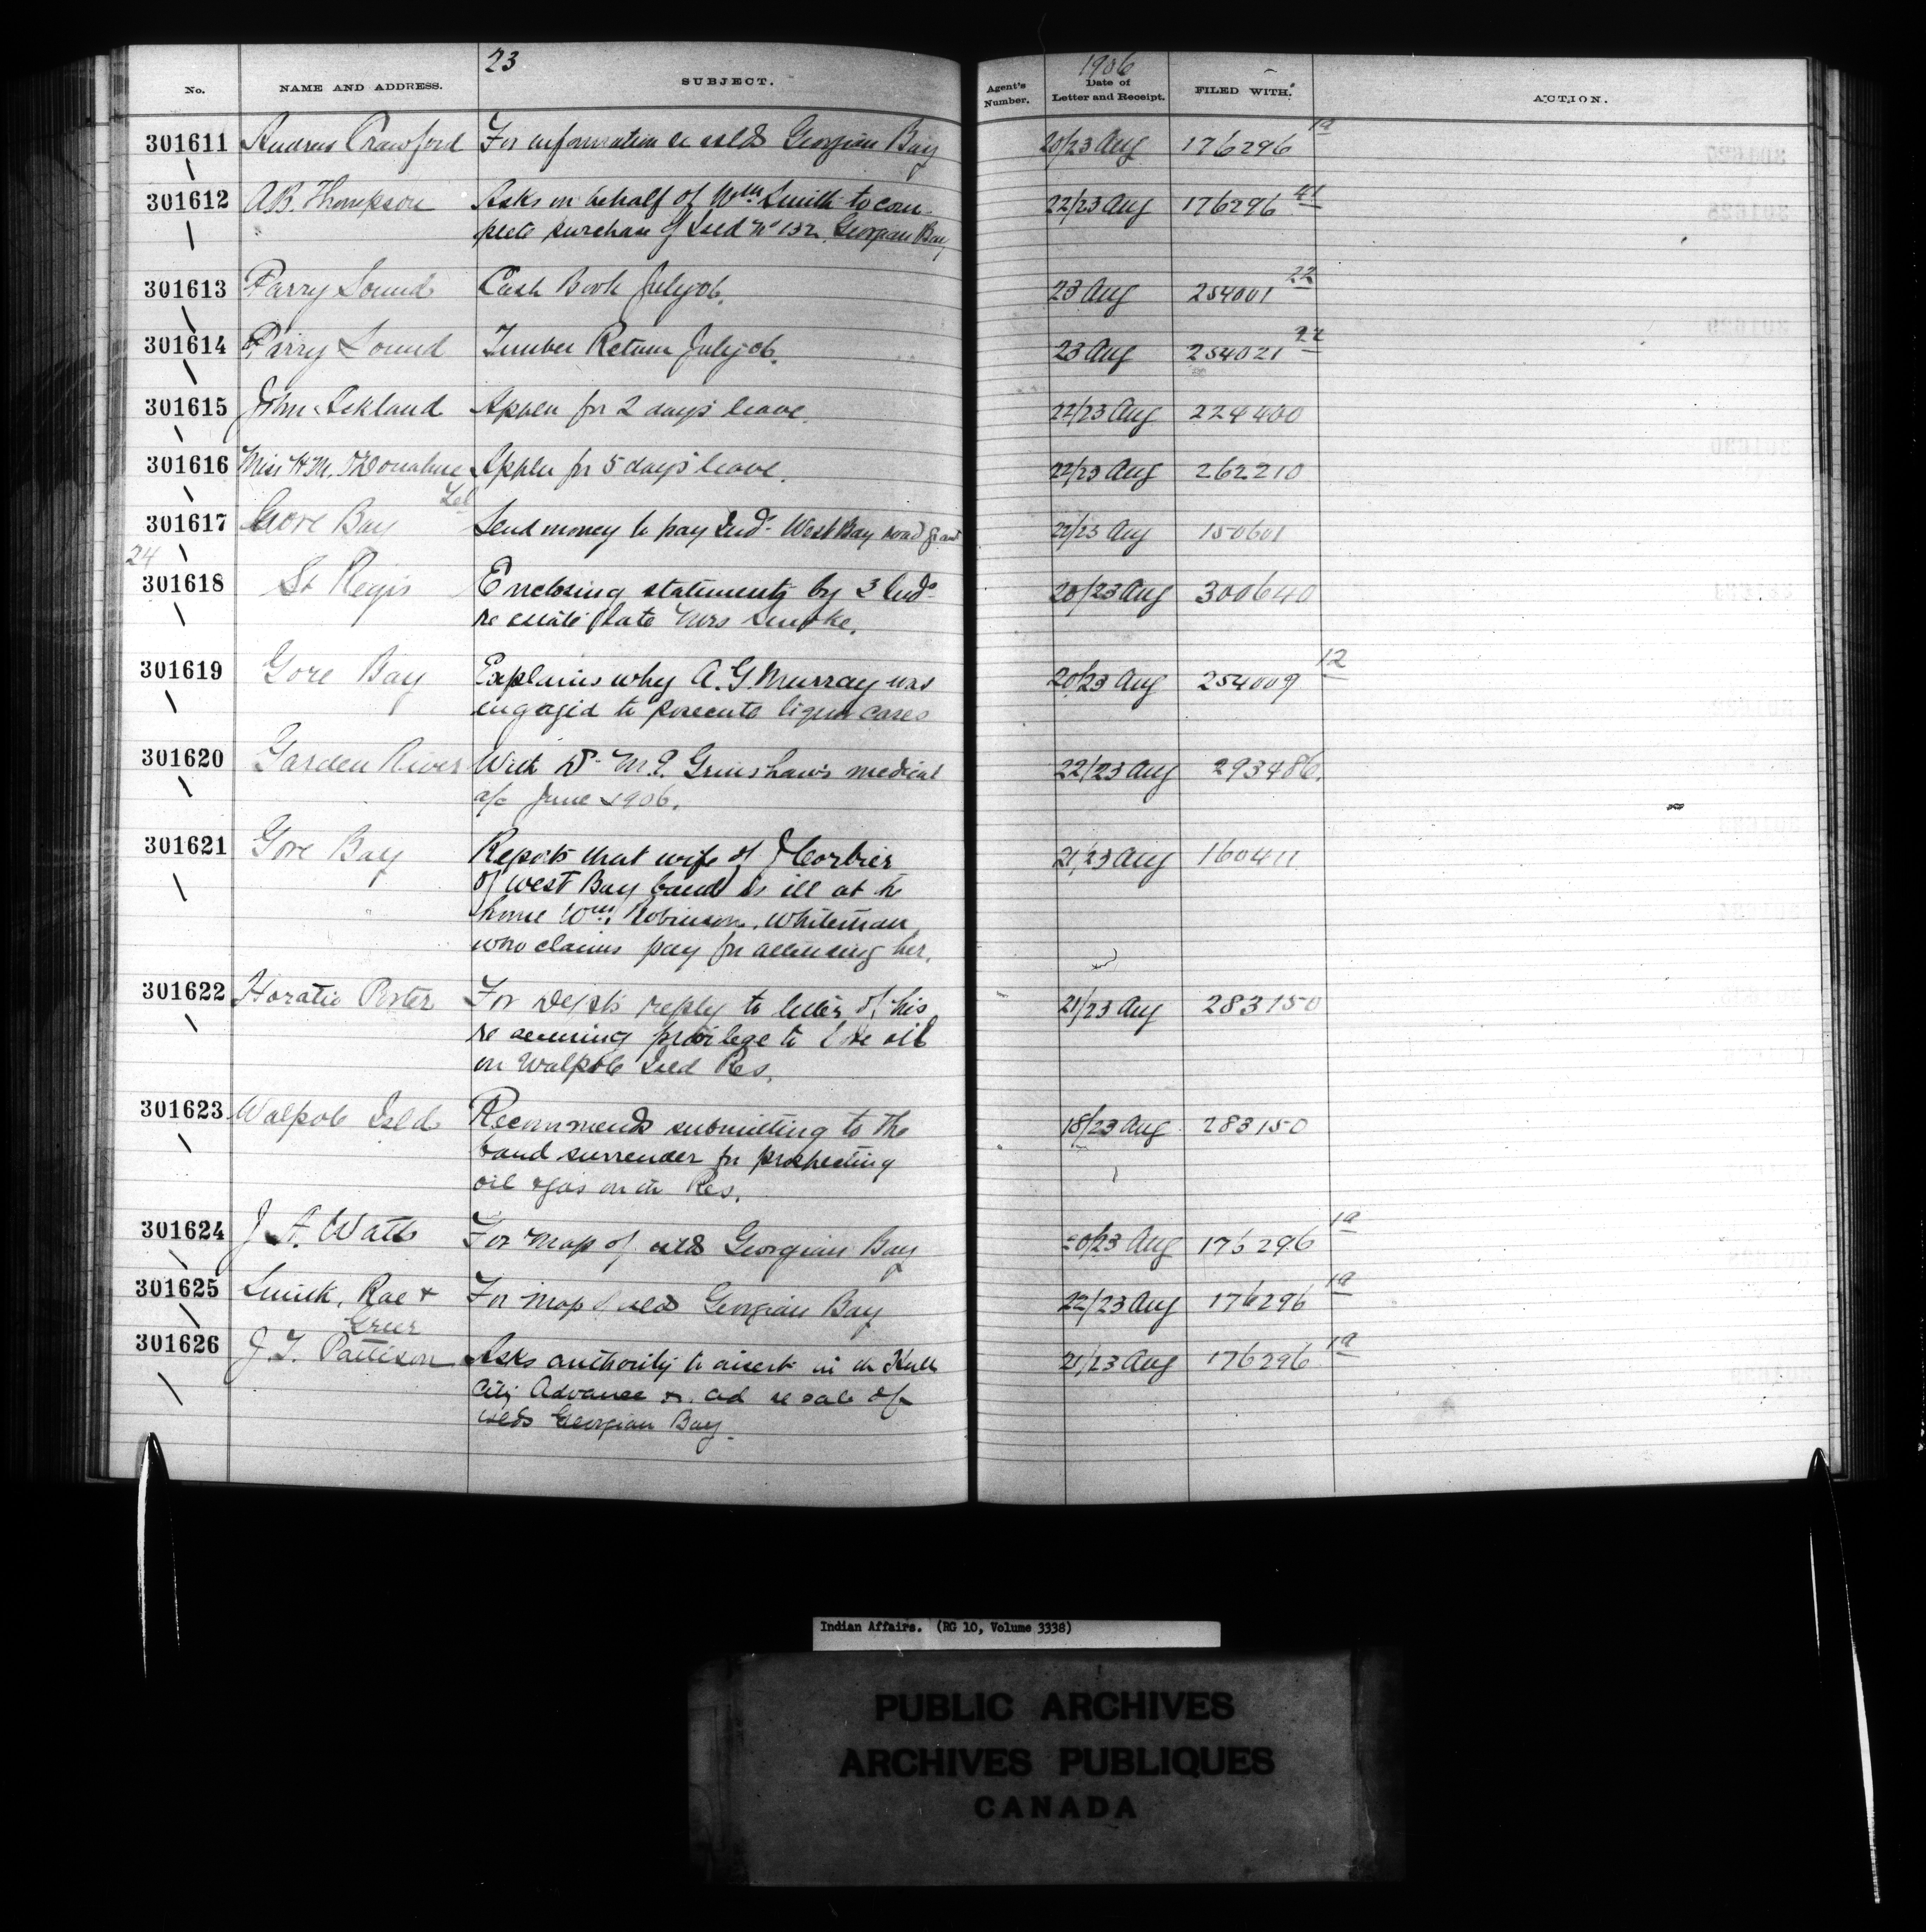 23
1906
No. NAME AND ADDRESS. SUBJECT. Agent's Number. Date of Letter and Receipt. FILED WITH. ACTION.
301611 Andrew Crawford For information re islds Georgian Bay 20/23 Aug 176296 1a
301612 A.B. Thompson Asks on behalf of Wm. Smith to com- 22/23 Aug 176296 41
plete purchase of Isld No 132, Georgian Bay
301613 Parry Sound Cash Book July 06. 23 Aug 254001 22
301614 Parry Sound Timber Return July 06. 23 Aug 254021 22
301615 John Ackland Applen for 2 days' leave. 22/23 Aug 224400
301616 Miss H.M. O'Donahue Applen for 5 days' leave. 22/23 Aug 262210
Tel
301617 Gore Bay Send money to pay Inds. West Bay road grant 22/23 Aug 150601
24
301618 St Regis Enclosing statements by 3 Inds. 20/23 Aug 300640
re estate late Mrs Smoke.
301619 Gore Bay Explains why A. G. Murray was 20/23 Aug 254009 12
engaged to prosecute liquor cases
301620 Garden River With Dr. M.E. Grimshaw's medical 22/23 Aug 293486.
a/c June 1906.
301621 Gore Bay Reports that wife of J Corbier 21/23 Aug 160411
of West Bay band is ill at the
home Wm. Robinson, whiteman
who claims pay for attending her.
301622 Horatio Porter For Dept's reply to letter of his 21/23 Aug 283150
re securing privilege to bore oil
on Walpole Isld Res.
301623 Walpole Isld Recommends submitting to the 18/23 Aug 283150
band surrender for prospecting
oil & gas on the Res.
301624 J. A. Watts For map of islds Georgian Bay 20/23 Aug 176296 1a
301625 Smith, Rae & For map of islds Georgian Bay 22/23 Aug 176296 1a
Greer
301626 J. T. Pattison Asks authority to insert in the Hull 21/23 Aug 176296 1a
City Advance the ad re sale of
islds Georgian Bay.
Indian Affairs. (RG 10, Volume 3338)
PUBLIC ARCHIVES
ARCHIVES PUBLIQUES
CANADA